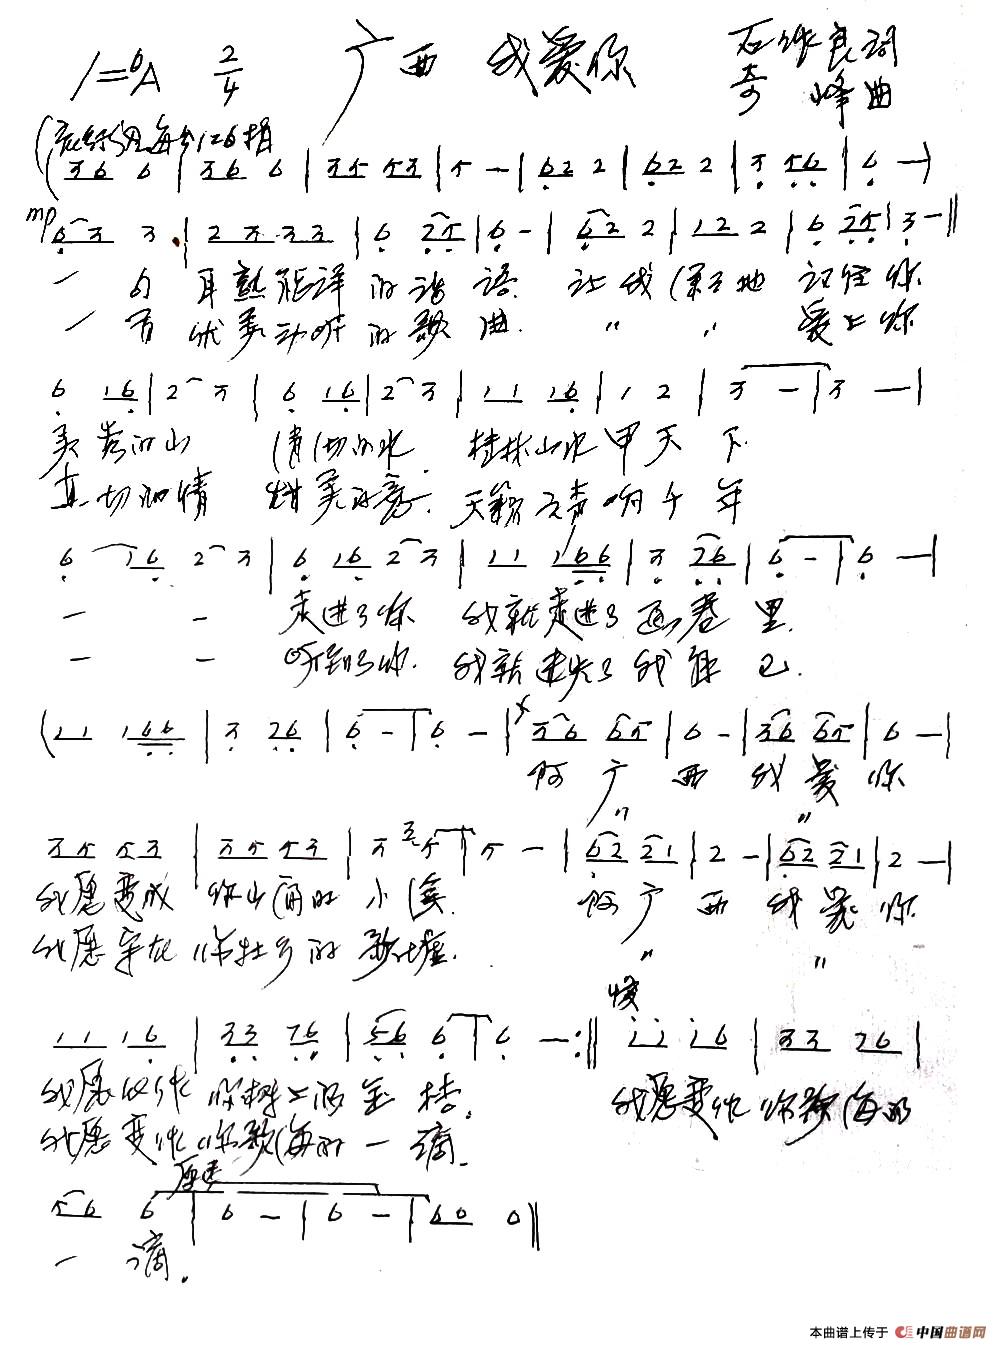 1=♭A 2/4 广西 我爱你 石 良词
奇峰曲
(36 6 | 36 6 | 35 53 | 5 — | 62 2 | 62 2 | 3 56 | 6 —)
mp 63 3 | 23 33 | 6 25 | 6 — | 62 2 | 12 2 | 6 25 | 3 — ‖
一句耳熟能详的谚语 让我 地记住你
一首优美动听的歌曲 〃 〃 爱上你
6 16 | 2 3 | 6 16 | 2 3 | 11 16 | 1 2 | 3 — | 3 — |
美 的山 的水 桂林山水甲天下
真切的情 甜美的音 天籁之声响千年
6 16 2 3 | 6 16 2 3 | 11 166 | 3 76 | 6 — | 6 — |
一 一 走进了你 我就走进了画卷里
一 一 听到了你 我就迷失了我自己
(11 166 | 3 76 | 6 — | 6 — | 36 65 | 6 — | 36 65 | 6 — |
啊广西我爱你
〃 〃
35 53 | 35 53 | 3 5 | 5 — | 62 21 | 2 — | 62 21 | 2 — |
我愿变成你山涧的小溪 啊广西我爱你
我愿 在你壮乡的歌墟 〃 〃
慢
11 16 | 33 76 | 56 6 | 6 — :‖ 11 16 | 33 76 |
我愿 你树上的金桔 我愿变作你歌海的
我愿变作你歌海的一滴
原速
56 6 | 6 — | 6 — | 60 0 ‖
一滴
本曲谱上传于 中国曲谱网